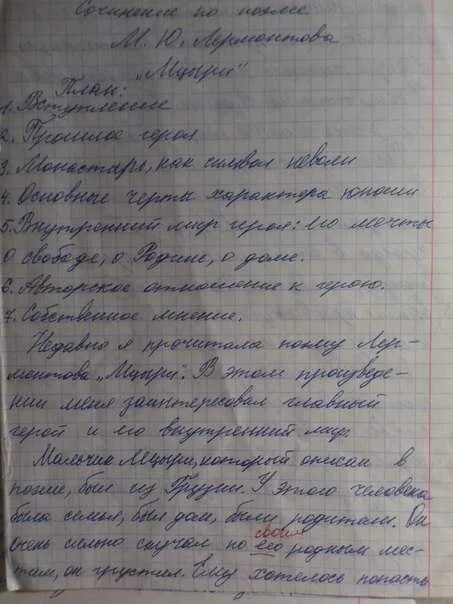 Сочинение по поэме
М. Ю. Лермонтова
„Мцыри"
План:
1. Вступление
2. Прошлое героя
3. Монастырь, как символ неволи
4. Основные черты характера юноши
5. Внутренний мир героя: его мечты
о свободе, о Родине, о доме.
6. Авторское отношение к герою.
7. Собственное мнение.
Недавно я прочитала поэму Лер-
монтова „Мцыри". В этом произведе-
нии меня заинтересовал главный
герой и его внутренний мир.
Мальчик Мцыри, который описан в
поэме, был из Грузии. У этого человека
была семья, был дом, были родители. Он
своим
очень сильно скучал по его родным мес-
там, он грустил. Ему хотелось попасть